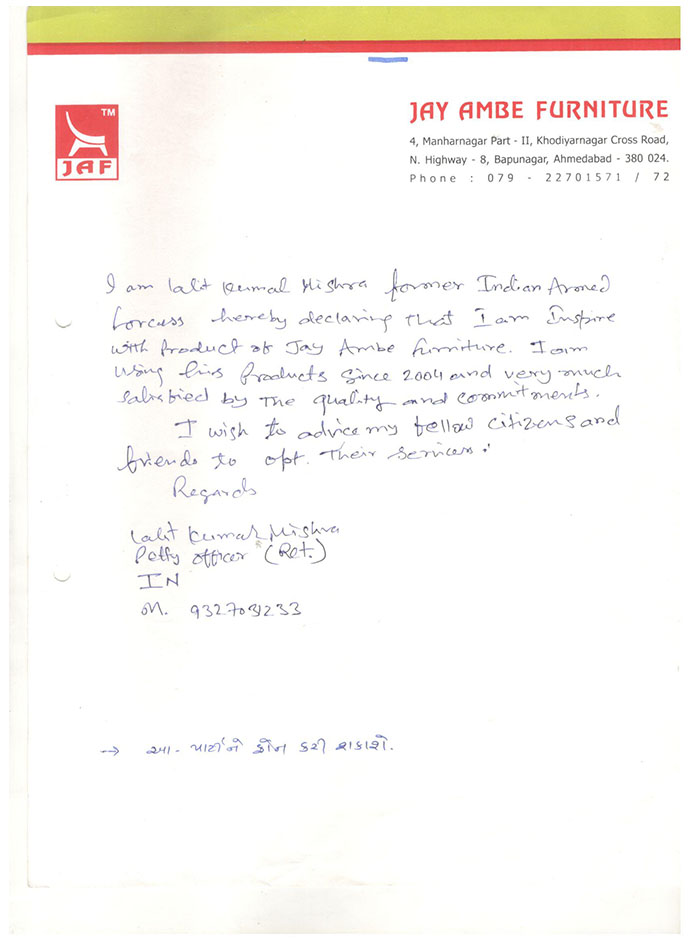 TM
JAF
JAY AMBE FURNITURE
4, Manharnagar Part - II, Khodiyarnagar Cross Road,
N. Highway - 8, Bapunagar, Ahmedabad - 380 024.
Phone : 079 - 22701571 / 72
I am Lalit Kumal Mishra former Indian Aromed
forcess hereby declaring that I am Inspire
with Product of Jay Ambe furniture. I am
Using his Products since 2004 and very much
satisfied by The quality and commitments.
I wish to advice my fellow citizens and
friends to opt. Their services.
Regards
Lalit Kumar Mishra
Petty officer (Ret.)
IN
M. 9327031233
→ આ - પાર્ટીને ફોન કરી શકાશે.